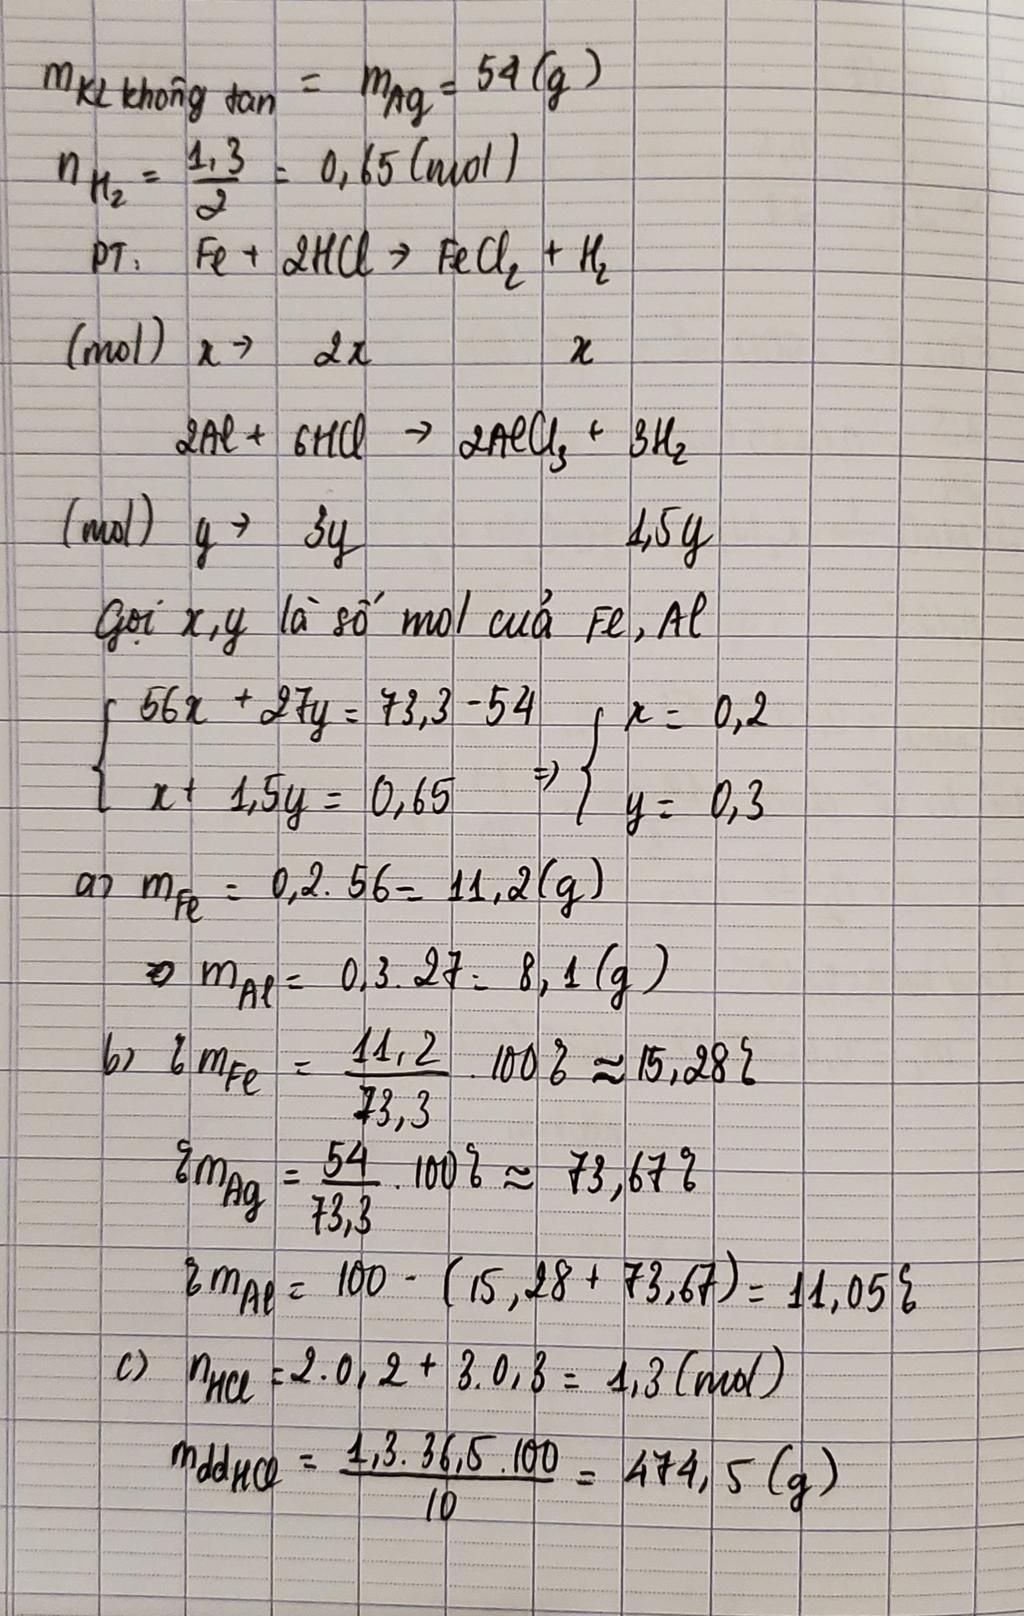 mKL không tan = mAg = 54 (g)
nH₂ = 1,3/2 = 0,65 (mol)
PT: Fe + 2HCl → FeCl₂ + H₂
(mol) x → 2x x
2Al + 6HCl → 2AlCl₃ + 3H₂
(mol) y → 3y 1,5y
Gọi x, y là số mol cuả Fe, Al
{ 56x + 27y = 73,3 - 54 ; x + 1,5y = 0,65 => { x = 0,2 ; y = 0,3
a) mFe = 0,2 . 56 = 11,2 (g)
mAl = 0,3 . 27 = 8,1 (g)
b) % mFe = 11,2/73,3 . 100% ≈ 15,28%
% mAg = 54/73,3 . 100% ≈ 73,67%
% mAl = 100 - (15,28 + 73,67) = 11,05%
c) nHCl = 2.0,2 + 3.0,3 = 1,3 (mol)
mddHCl = 1,3 . 36,5 . 100/10 = 474,5 (g)